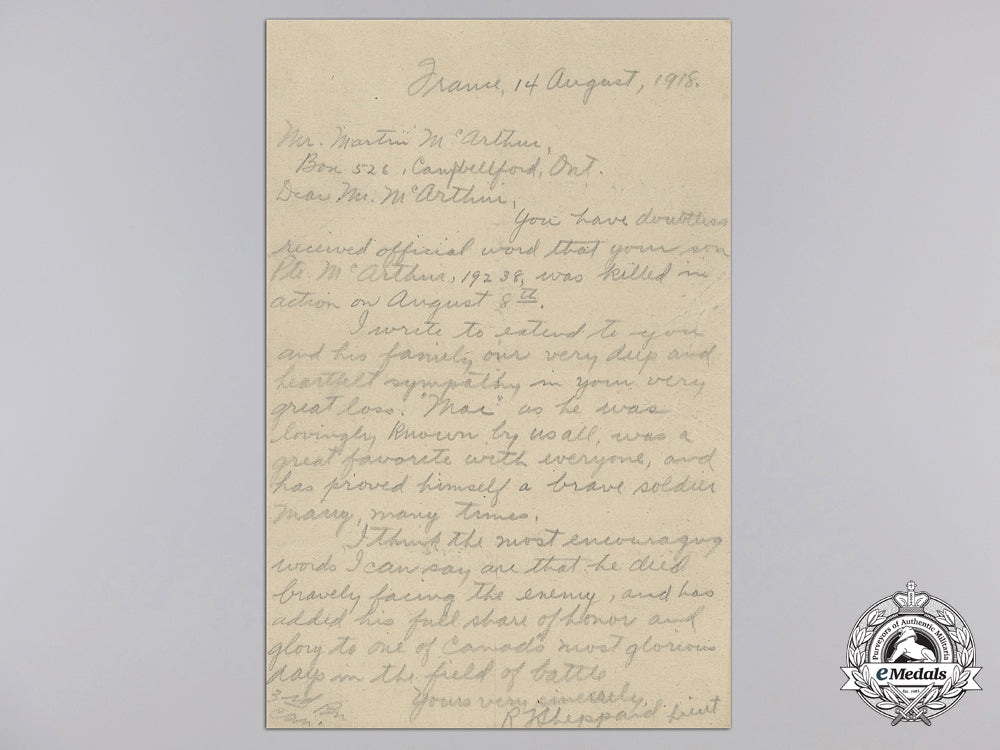 France, 14 August, 1918.
Mr. Martin McArthur,
Box 526, Campbellford, Ont.
Dear Mr. McArthur,
You have doubtless
received official word that your son
Pte. McArthur, 19238, was killed in
action on August 8th.
I write to extend to you
and his family our very deep and
heartfelt sympathy in your very
great loss. "Mac" as he was
lovingly known by us all, was a
great favorite with everyone, and
has proved himself a brave soldier
many, many times.
I think the most encouraging
words I can say are that he died
bravely facing the enemy, and has
added his full share of honor and
glory to one of Canada's most glorious
days in the field of battle
Yours very sincerely,
R Sheppard Lieut
3 Bn
Can.
Purveyors of Authentic Militaria
eMedals